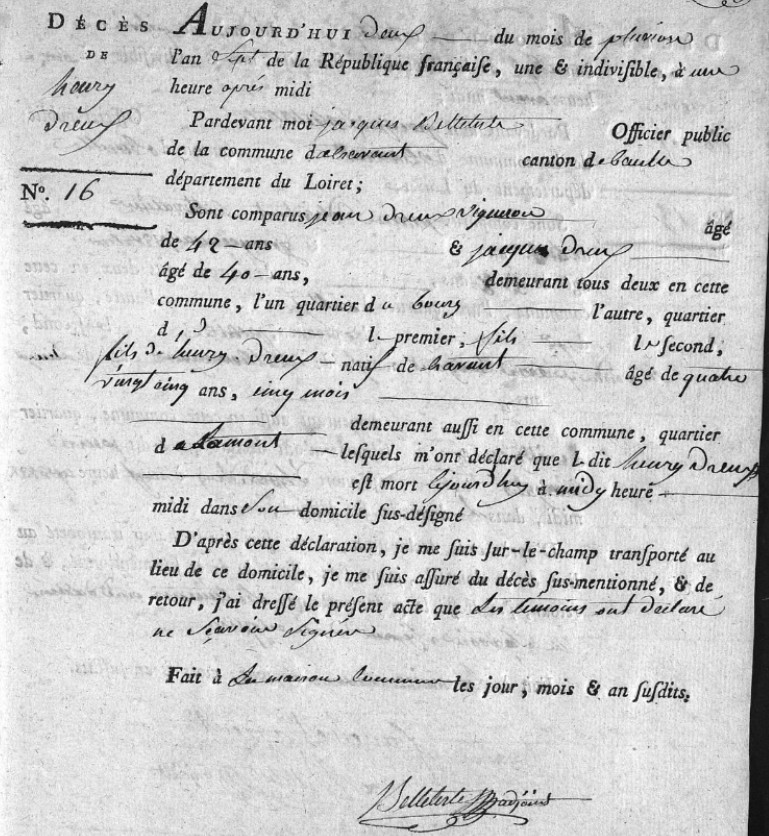 DÉCÈS
DE
henry
dreux
No. 16
AUJOURD'HUI deux du mois de pluviose
l'an Sept de la République françaiſe, une & indiviſible, à une
heure après midi
Pardevant moi jacques Belleteste Officier public
de la commune canton de baulle
département du Loiret;
Sont comparus jean dreux vigneron âgé
de 42 ans & jacques dreux
âgé de 40 ans, demeurant tous deux en cette
commune, l'un quartier du bourg l'autre, quartier
d le premier, fils le second,
fils de henry dreux natif de âgé de quatre
vingt cinq ans, cinq mois
demeurant auſſi en cette commune, quartier
d leſquels m'ont déclaré que le dit henry dreux
eſt mort à midy heure
midi dans Son domicile ſus-déſigné
D'après cette déclaration, je me ſuis ſur-le-champ tranſporté au
lieu de ce domicile, je me ſuis aſſuré du décès ſus-mentionné, & de
retour, j'ai dreſſé le préſent acte que Les temoins ont declaré
ne Sçavoir Signer
Fait à La maison Commune les jour, mois & an ſuſdits.
Belleteste adjoint